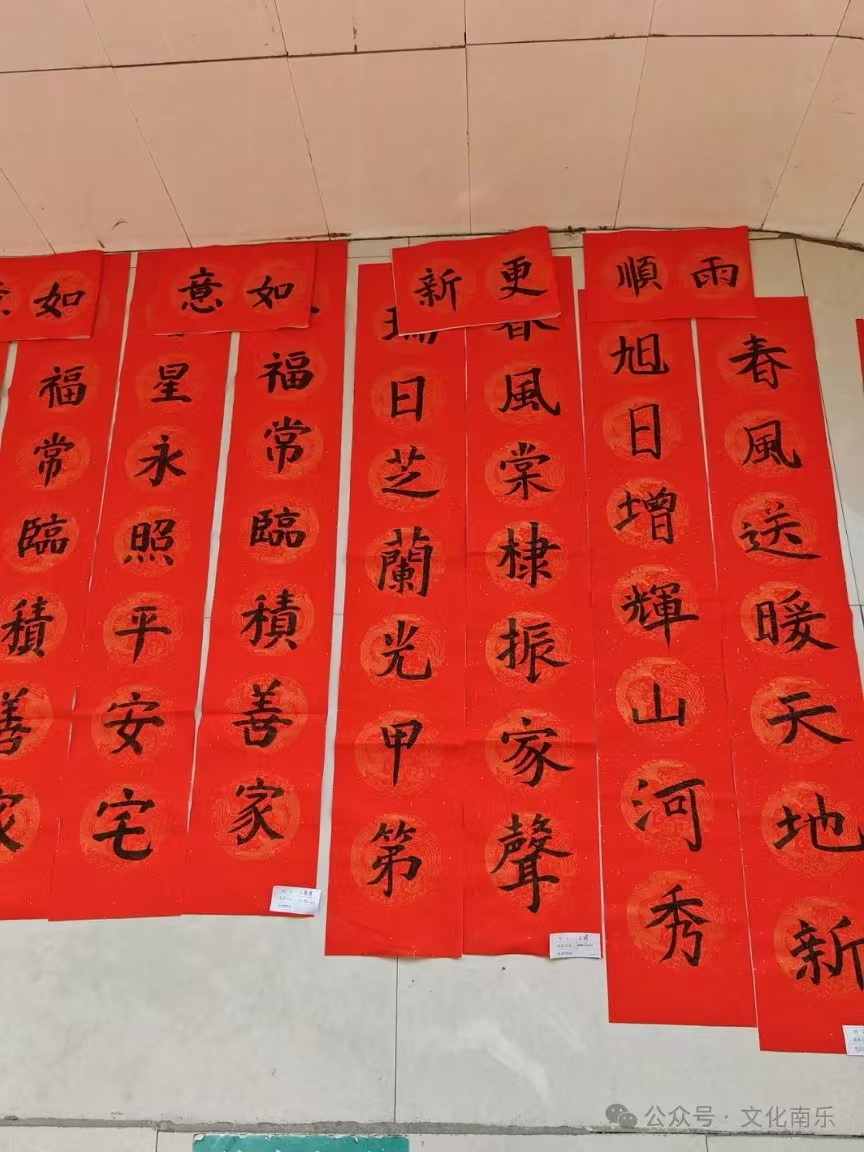 雨順
春風送暖天地新
旭日增輝山河秀
更新
春風棠棣振家聲
瑞日芝蘭光甲第
如意
福常臨積善家
星永照平安宅
如意
福常臨積善家
公众号·文化南乐